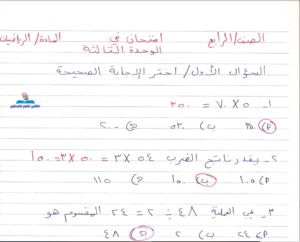 الصف/ الرابع امتحان في المادة/ الرياضيات
الوحدة الثالثة
السؤال الأول/ اختر الإجابة الصحيحة
١- ٥ × ٧٠ = ٣٥٠
أ) ٣٥٠ ب) ٥٣٠ ج) ٢٠٠
٢- يقدر ناتج الضرب ٥٤ × ٣ = ٥٠ × ٣ = ١٥٠
أ) ١٠٥ ب) ١٥٠ ج) ١١٥
٣- في العملية ٤٨ ÷ ٢ = ٢٤ المقسوم هو
أ) ٢٤ ب) ٢ ج) ٤٨